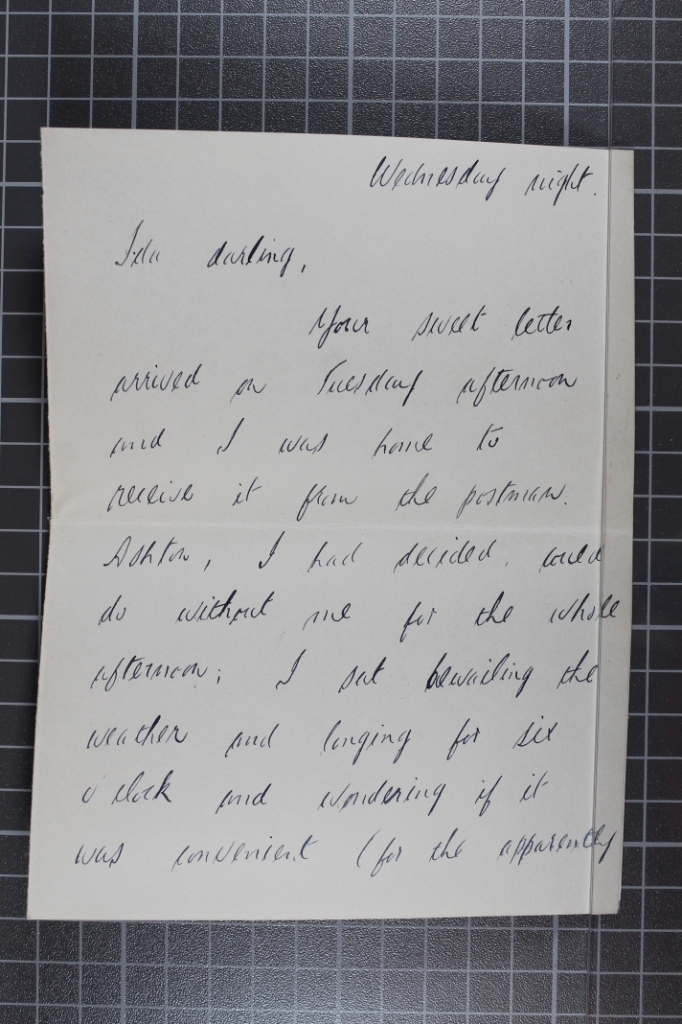 Wednesday night.
Ida darling,
Your sweet letter
arrived on Tuesday afternoon
and I was home to
receive it from the postman.
Ashton, I had decided, could
do without me for the whole
afternoon; I sat bewailing the
weather and longing for six
o'clock and wondering if it
was convenient (for the apparently